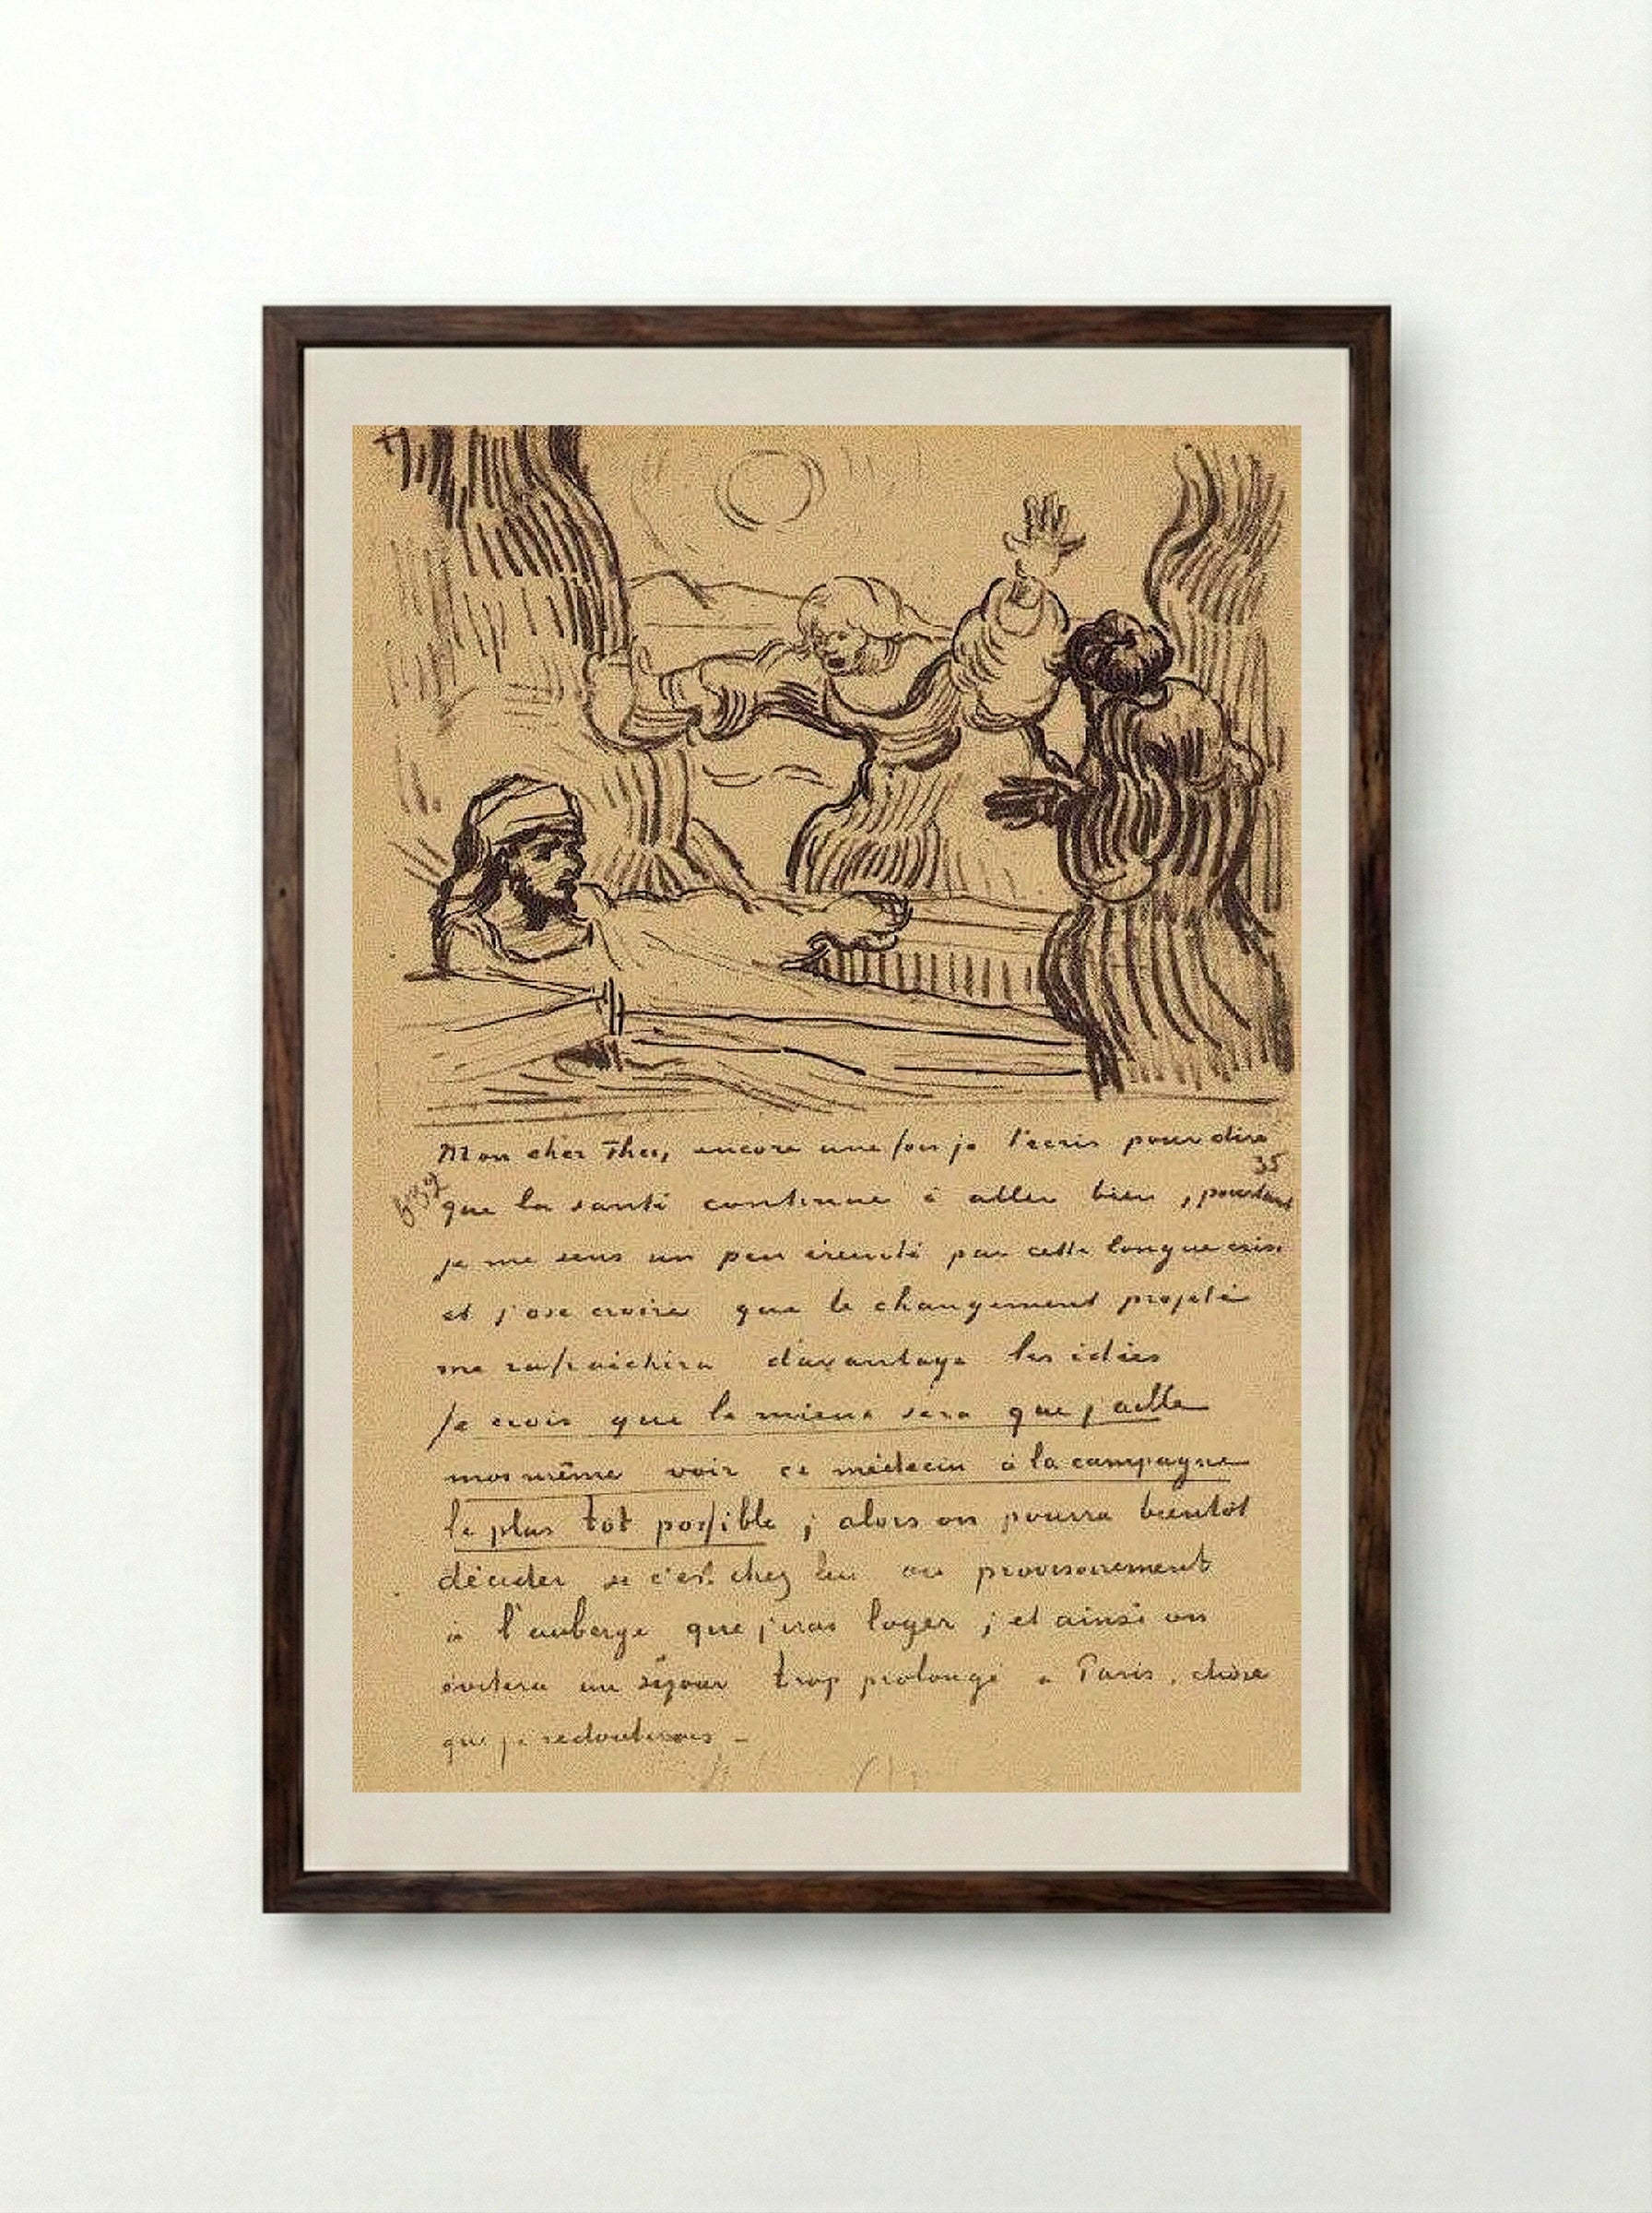 Mon cher Theo, encore une fois je t'écris pour dire
35
que la santé continue à aller bien, pourtant
je me sens un peu éreinté par cette longue crise
et j'ose croire que le changement projeté
me rafraichira davantage les idées
Je crois que le mieux sera que j'aille
moi même voir ce médecin à la campagne
le plus tôt possible ; alors on pourra bientôt
décider si c'est chez lui ou provisoirement
à l'auberge que j'irai loger ; et ainsi on
évitera un séjour trop prolongé à Paris, chose
que je redouterais —